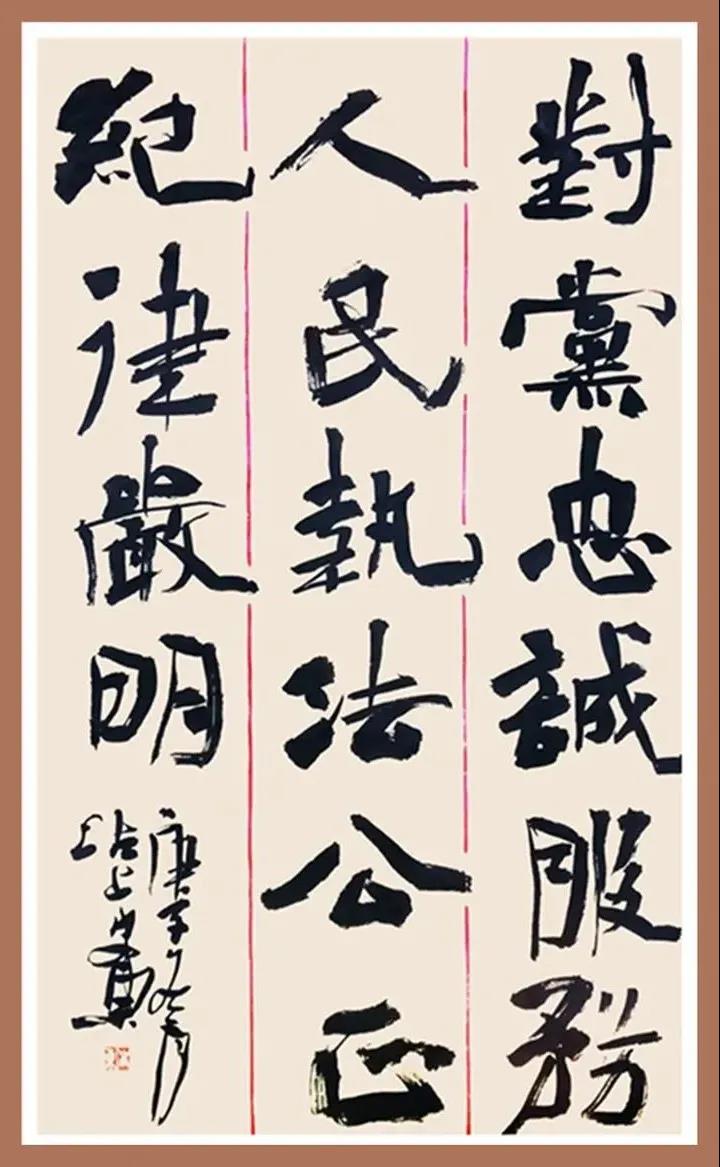 對黨忠誠服務
人民執法公正
紀律嚴明
庚子
沽上